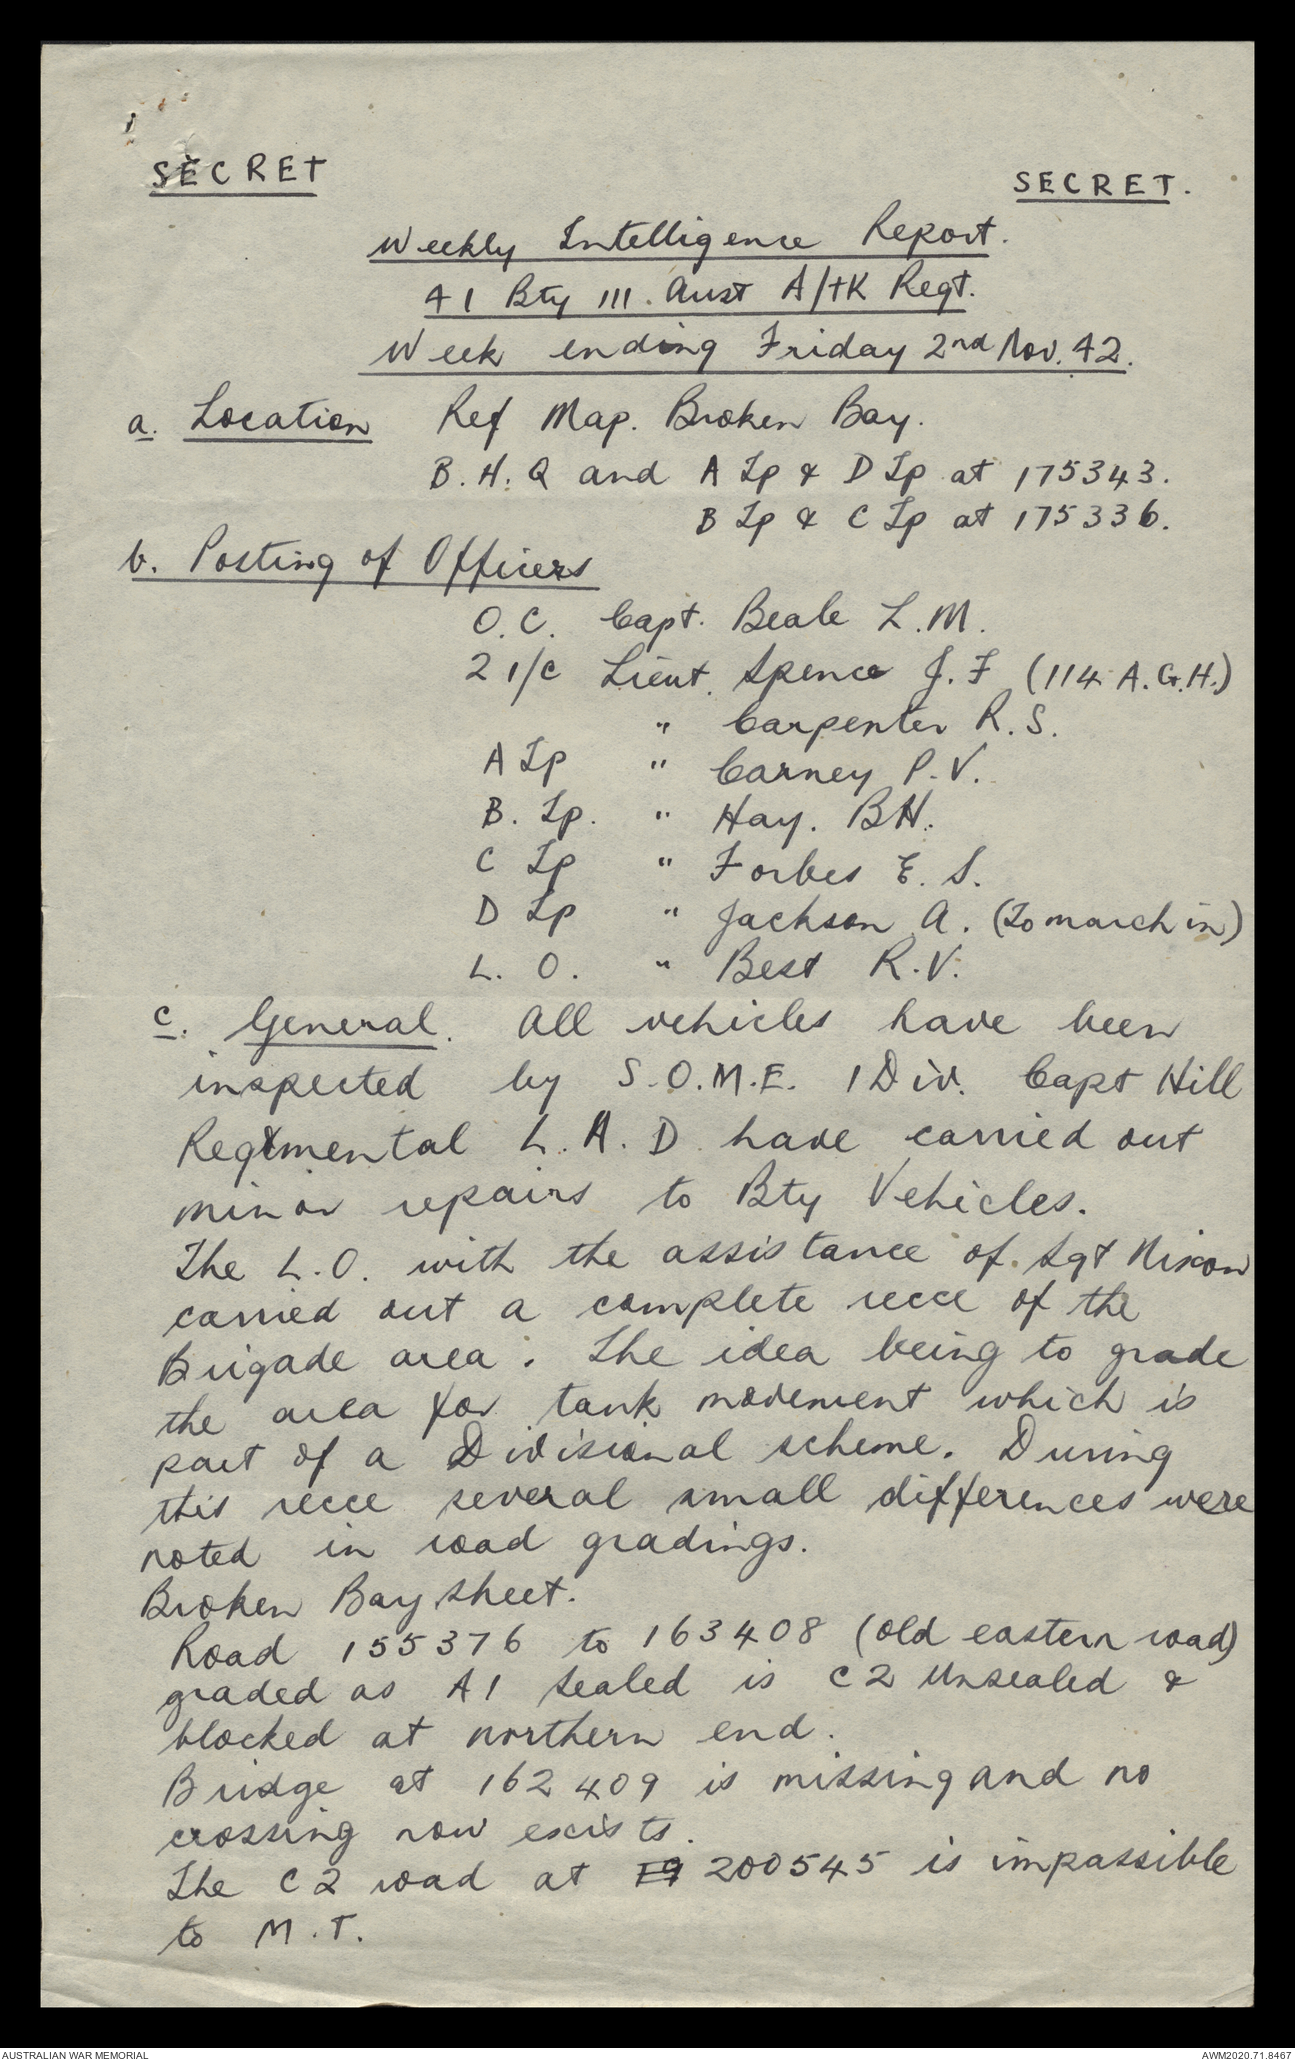 SECRET
SECRET.
Weekly Intelligence Report.
41 Bty 111. Aust A/tK Regt.
Week ending Friday 2nd Nov. 42.
a. Location Ref Map. Broken Bay.
B.H.Q and A Tp & D Tp at 175343.
B Tp & C Tp at 175336.
b. Posting of Officers
O.C. Capt. Beale L.M.
2 1/c Lieut. Spence J.F (114 A.G.H.)
" Carpenter R.S.
A Tp " Carney P.V.
B. Tp. " Hay. BH.
C Tp " Forbes E.S.
D Tp " Jackson A. (To march in)
L.O. " Best R.V.
c. General. All vehicles have been
inspected by S.O.M.E. 1 Div. Capt Hill
Regimental L.A.D have carried out
minor repairs to Bty Vehicles.
The L.O. with the assistance of Sgt Nixon
carried out a complete recce of the
Brigade area. The idea being to grade
the area for tank movement which is
part of a Divisional scheme. During
this recce several small differences were
noted in road gradings.
Broken Bay sheet.
Road 155376 to 163408 (old eastern road)
graded as A1 sealed is C2 Unsealed &
blocked at northern end.
Bridge at 162409 is missing and no
crossing now exists.
The C2 road at 200545 is impassible
to M.T.
AUSTRALIAN WAR MEMORIAL
AWM2020.71.8467